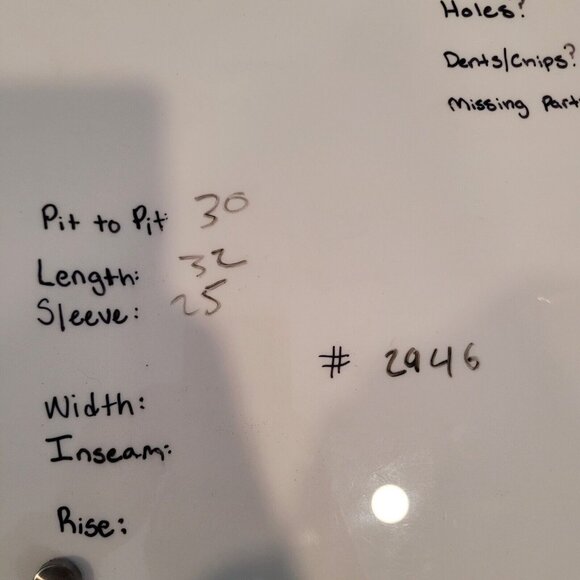 Holes?
Dents/Chips?
Missing Part
Pit to Pit: 30
Length: 32
Sleeve: 25
# 2946
Width:
Inseam:
Rise: